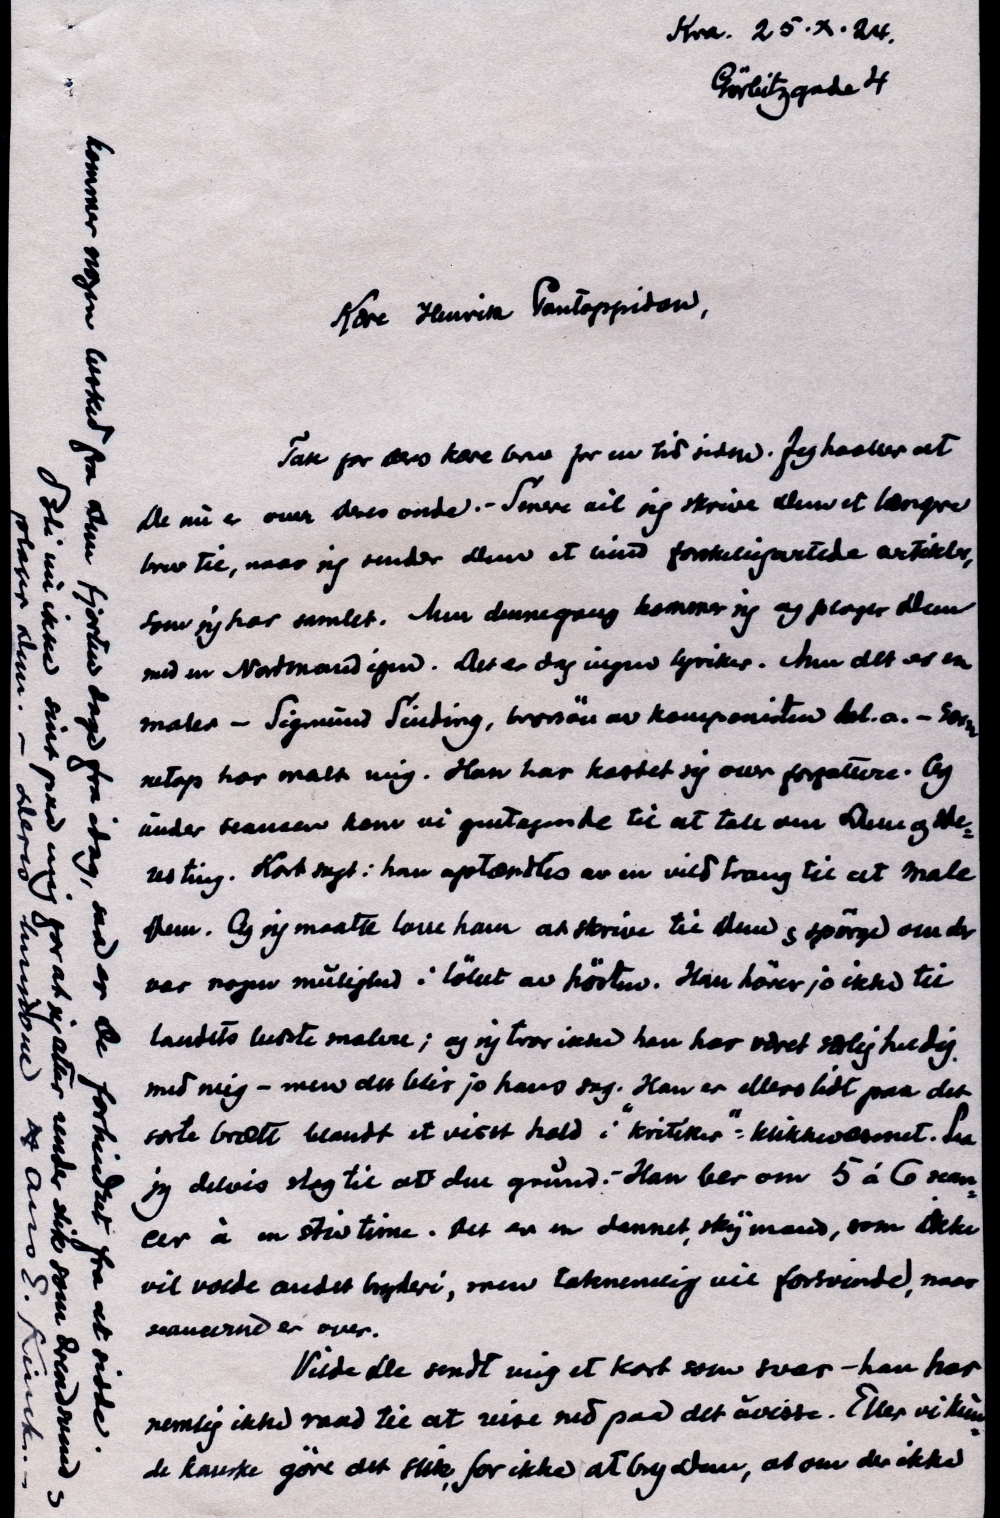 Kra. 25.X.24.
Görbitzgade 4
Kære Henrik Pontoppidan,
Tak for deres kære brev for en tid siden. Jeg haaber at
De nu er over deres onde. - Senere vil jeg skrive Dem et længre
brev til, naar jeg sender Dem et bind forskjeligartede artikler,
som jeg har samlet. Men dennegang kommer jeg og plager Dem
med en Nordmand igen. Det er dog ingen lyriker. Men det er en
maler - Sigmund Sinding, brorsön av komponisten bl.a. - som
netop har malt mig. Han har kastet sig over forfattere. Og
under seancen kom vi gjentagende til at tale om Dem og De=
res ting. Kort sagt: han optændtes av en vild trang til at male
Dem. Og jeg maatte love ham at skrive til Dem & spörge om der
var nogen mulighed i löbet av hösten. Han hörer jo ikke til
landets bedste malere; og jeg tror ikke han har været særlig heldig
med mig - men det blir jo hans sag. Han er ellers lidt paa det
sorte bræt blandt et visst hold i "kritiker"=klikkevæsenet. Saa
jeg delvis slog til av den grund. - Han ber om 5 à 6 sean=
cer à en stiv time. Det er en dannet, sky mand, som ikke
vil volde andet bryderi, men taknemmelig vil forsvinde, naar
seancerne er over.
Vilde De sendt mig et kort som svar - han har
nemlig ikke raad til at reise ned paa det uvisse. Eller vi kun=
de kanske göre det slik, for ikke at bry Dem, at om der ikke
kommer nogen besked fra Dem fjorten dage fra idag, saa er De forhindret fra at sidde.
Bli nu ikke sint paa mig for at jeg atter sender slik som Drendsund &
plager Dem. - Deres hengivne Hans E. Kinck. -